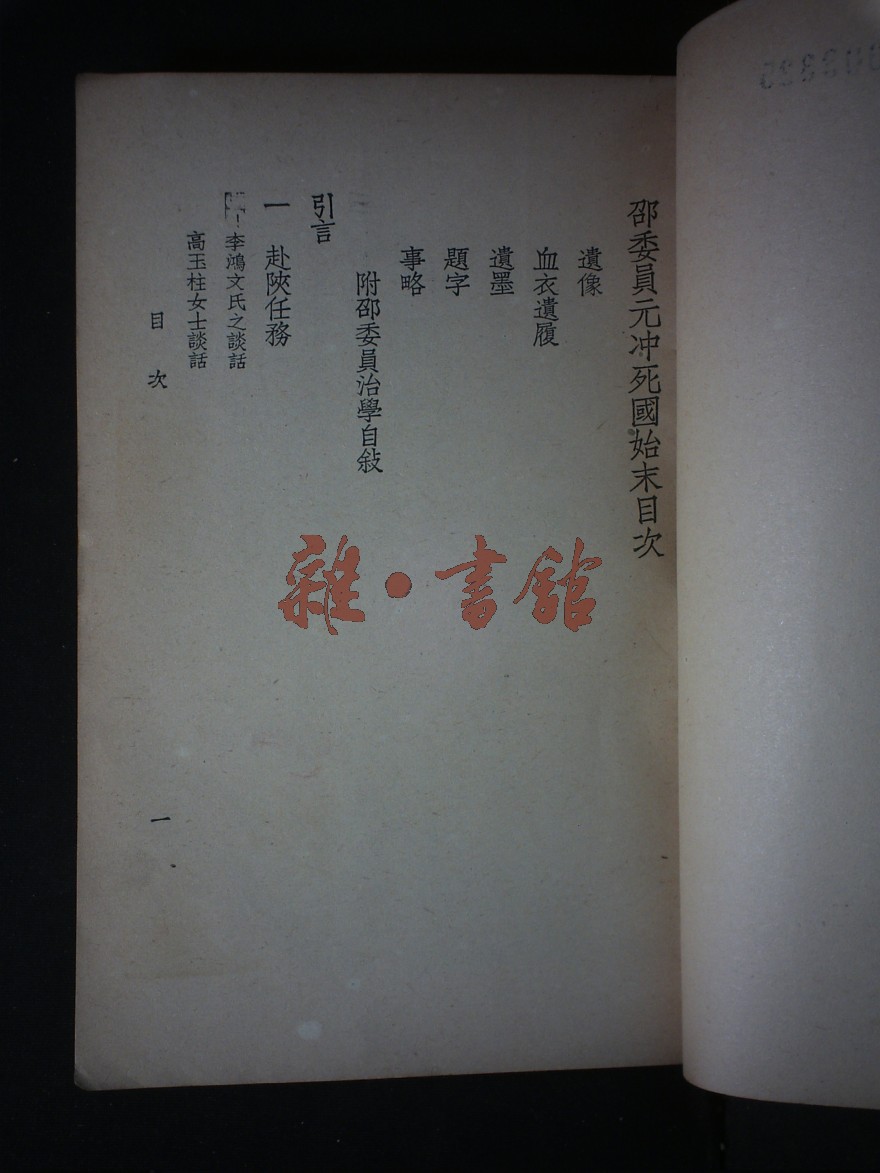 邵委員元冲死國始末目次
遺像
血衣遺履
遺墨
題字
事略
附邵委員治學自敍
引言
一 赴陝任務
李鴻文氏之談話
高玉柱女士談話
目次
一
雜·書館